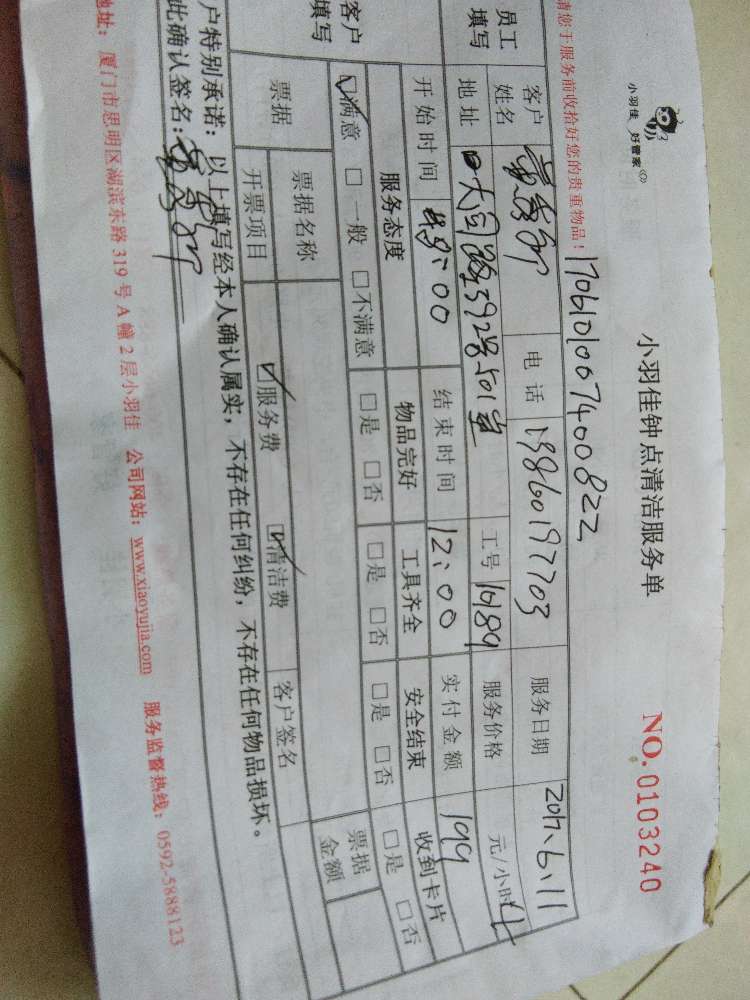 小羽佳 好管家
小羽佳钟点清洁服务单
NO. 0103240
17061010067400822
请您于服务前收拾好您的贵重物品！
员工填写 客户姓名 电话 服务日期 2017.6.11
地址 392号501室 工号 10189 服务价格 元/小时 4
开始时间 8:00 结束时间 12:00 实付金额 199
客户填写 服务态度 物品完好 工具齐全 安全结束 收到卡片
☑满意 □一般 □不满意 □是 □否 □是 □否 □是 □否 □是 □否
票据 票据名称 ☑服务费 ☑清洁费 客户签名 票据金额
开票项目
户特别承诺：以上填写经本人确认属实，不存在任何纠纷，不存在任何物品损坏。
此确认签名：
地址：厦门市思明区湖滨东路319号A幢2层小羽佳 公司网站：www.xiaoyujia.com 服务监督热线：0592-5888123